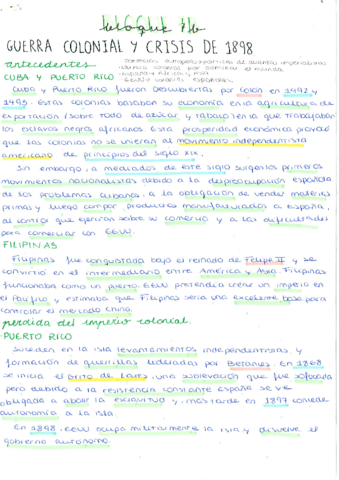 bloque 7b
GUERRA COLONIAL Y CRISIS DE 1898
antecedentes
CUBA Y PUERTO RICO
Cuba y Puerto Rico fueron descubiertas por Colón en 1492 y
1493. Estas colonias basaban su economía en la agricultura de
exportación (sobre todo de azúcar y tabaco) en la que trabajaban
los esclavos negros africanos. Esta prosperidad económica provocó
que las colonias no se unieran al movimiento independentista
americano de principios del siglo XIX.
Sin embargo, a mediados de este siglo surgen los primeros
movimientos nacionalistas debido a la despreocupación española
de los problemas cubanos, a la obligación de vender materias
primas y luego comprar productos manufacturados a España,
al control que ejercían sobre su comercio y a las dificultades
para comerciar con EEUU.
FILIPINAS
Filipinas fue conquistada bajo el reinado de Felipe II y se
convirtió en el intermediario entre América y Asia. Filipinas
funcionaba como un puerto. EEUU pretendía crear un imperio en
el Pacífico y estimaba que Filipinas sería una excelente base para
controlar el mercado chino.
perdida del imperio colonial
-PUERTO RICO
Suceden en la isla levantamientos independentistas y
formación de guerrillas lideradas por Betances. En 1868
se inicia el Grito de Lares, una sublevación que fue sofocada
pero debido a la resistencia constante España se ve
obligada a abolir la esclavitud y, más tarde en 1897 concede
autonomía a la isla.
En 1898, EEUU ocupa militarmente la isla y disuelve el
gobierno autónomo.